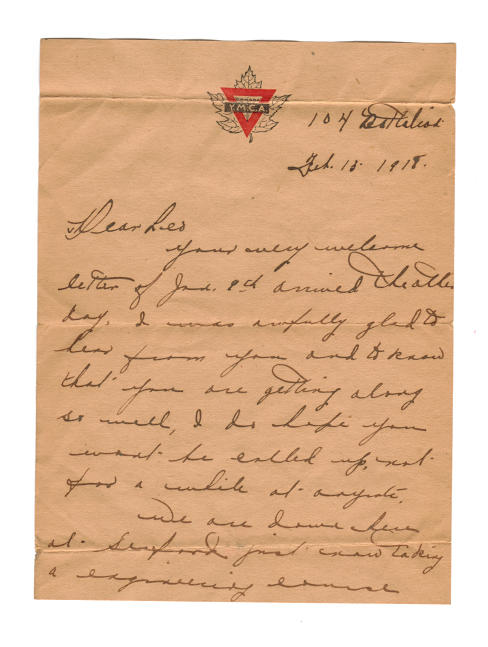 CANADIAN
Y.M.C.A.
104 Battalion
Feb. 15. 1918.
Dear Leo
your very welcome
letter of Jan. 9th arrived the other
day. I was awfully glad to
hear from you and to know
that you are getting along
so well, I do hope you
wont be called up, not
for a while at anyrate.
We are down here
at Seaford just now taking
a engineering course